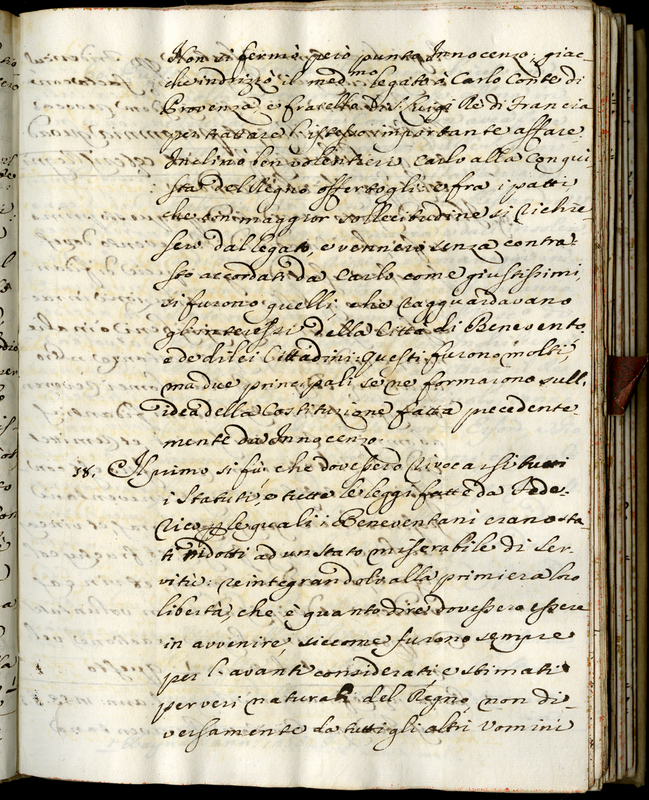 Non si fermò però punto Innocenzo: giac-
che indrizzò il med.mo legato à Carlo Conte di
Provenza, e fratello di S. Luigi Re di Francia
per trattare l'istesso importante affare.
Inclinò ben volentieri Carlo alla Conqui-
sta del Regno offertogli: e fra i patti
che con maggior sollecitudine si richie-
sero dal legato, e vennero senza contra-
sto accordati da Carlo come giustissimi,
vi furono quelli, che ragguardavano
gl'interessi della Città di Benevento,
e de di lei Cittadini: questi furono molti,
ma due principali se ne formarono sull'
idea della Costituzione fatta precedente-
mente da Innocenzo.
18. Il primo si fù che dovessero rivocarsi tutti
i Statuti, e tutte le leggi fatte da Fede-
rico, per le quali i Beneventani erano sta-
ti ridotti ad un stato miserabile di ser-
vitù: reintegrandoli alla primiera loro
libertà, che è quanto dire dovessero essere
in avvenire, siccome furono sempre
per l'avanti considerati e stimati
per veri naturali del Regno, non di-
versamente da tutti gli altri Uomini